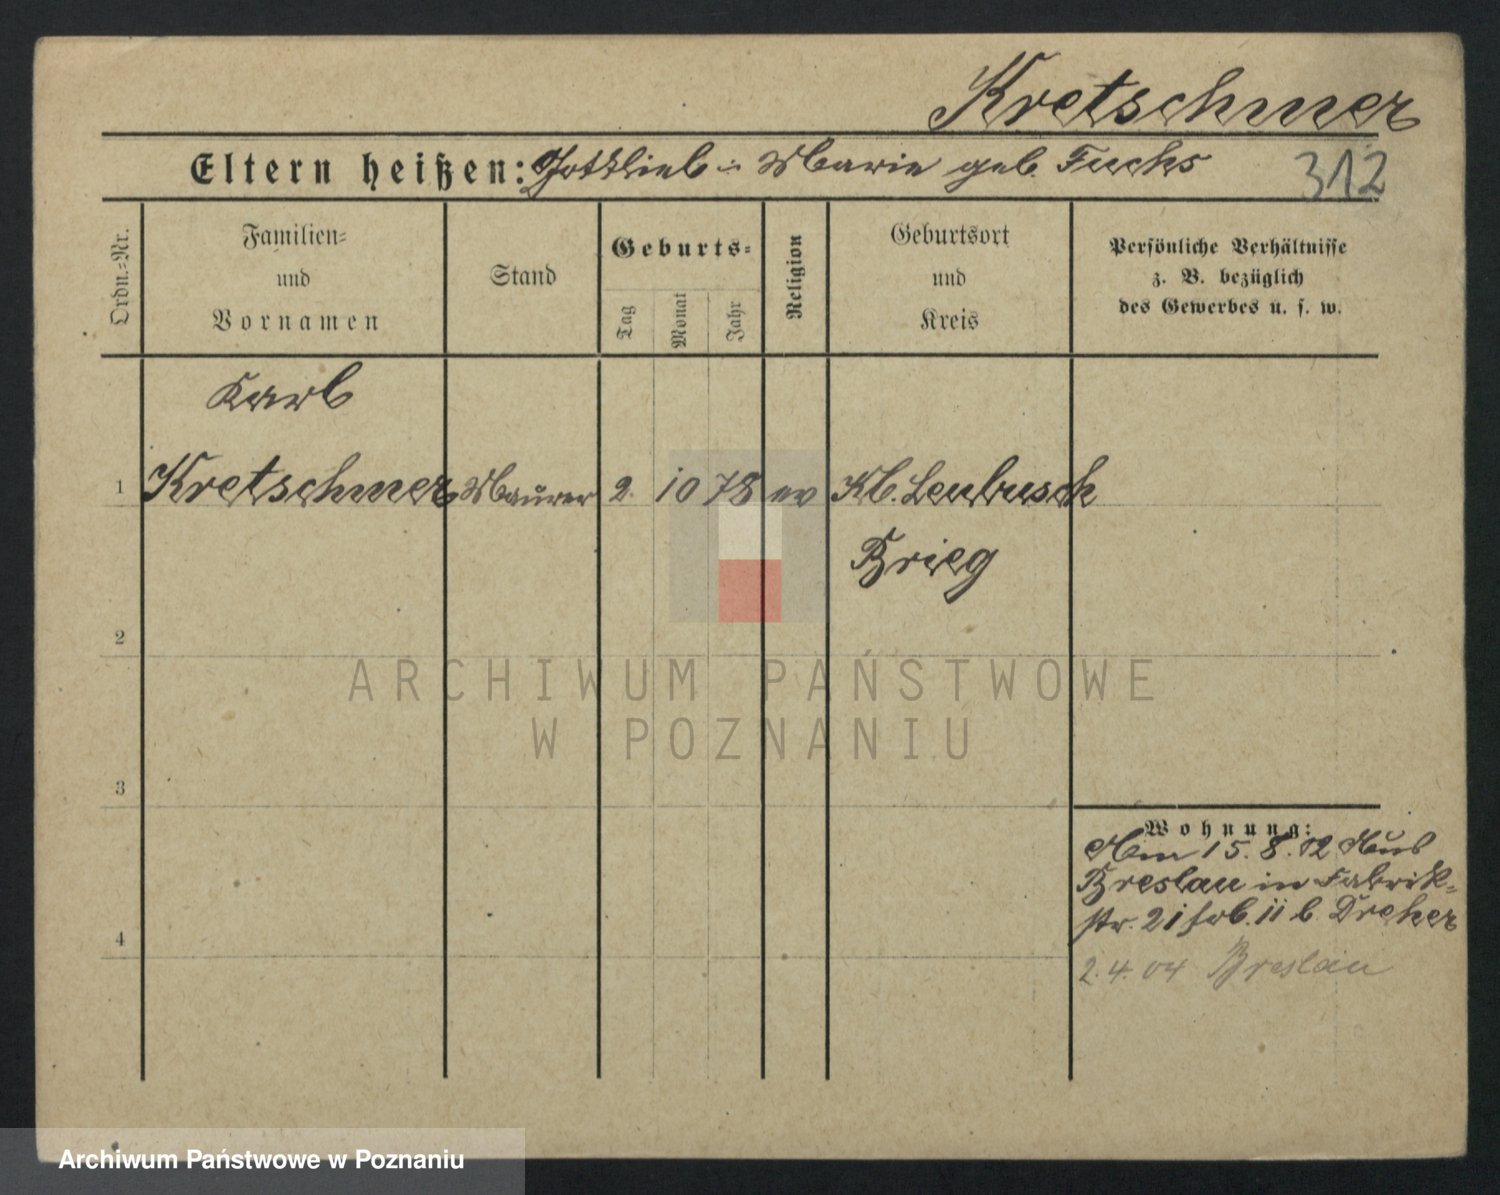 Kretschmer
Eltern heißen: Gottlieb - Marie geb. Fuchs
312
Ordn.-Nr.
Familien-
und
Vornamen
Stand
Geburts-
Tag
Monat
Jahr
Religion
Geburtsort
und
Kreis
Persönliche Verhältnisse
z. B. bezüglich
des Gewerbes u. s. w.
Karl
1 Kretschmer Maurer 2. 10 78 ev Kl. Leubusch
Brieg
2
3
4
Wohnung:
Am 15. 8. 02 aus
Breslau in Fabrik-
str. 21 II b. Dreher
2. 4. 04 Breslau
ARCHIWUM PAŃSTWOWE
W POZNANIU
Archiwum Państwowe w Poznaniu